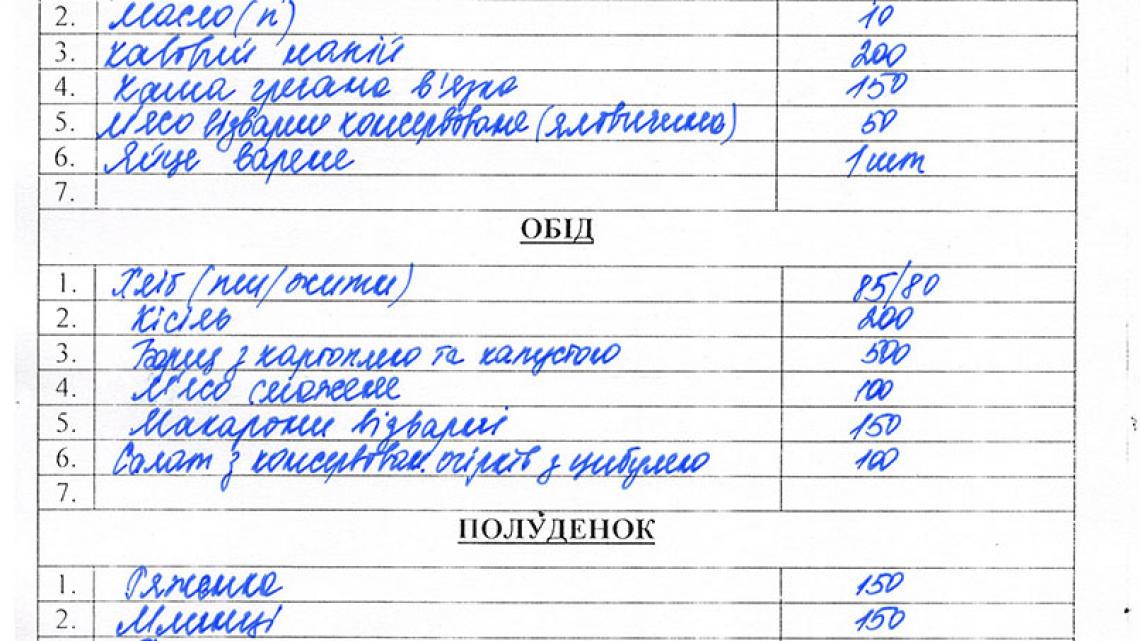 2. Масло (п) 10
3. Кавовий напій 200
4. Каша гречана в'язка 150
5. М'ясо відварне консервоване (яловичина) 50
6. Яйце варене 1 шт
7.
ОБІД
1. Хліб (пш/житн) 85/80
2. Кісіль 200
3. Борщ з картоплею та капустою 500
4. М'ясо смажене 100
5. Макарони відварні 150
6. Салат з консервован. огірків з цибулею 100
7.
ПОЛУДЕНОК
1. Ряженка 150
2. Млинці 150